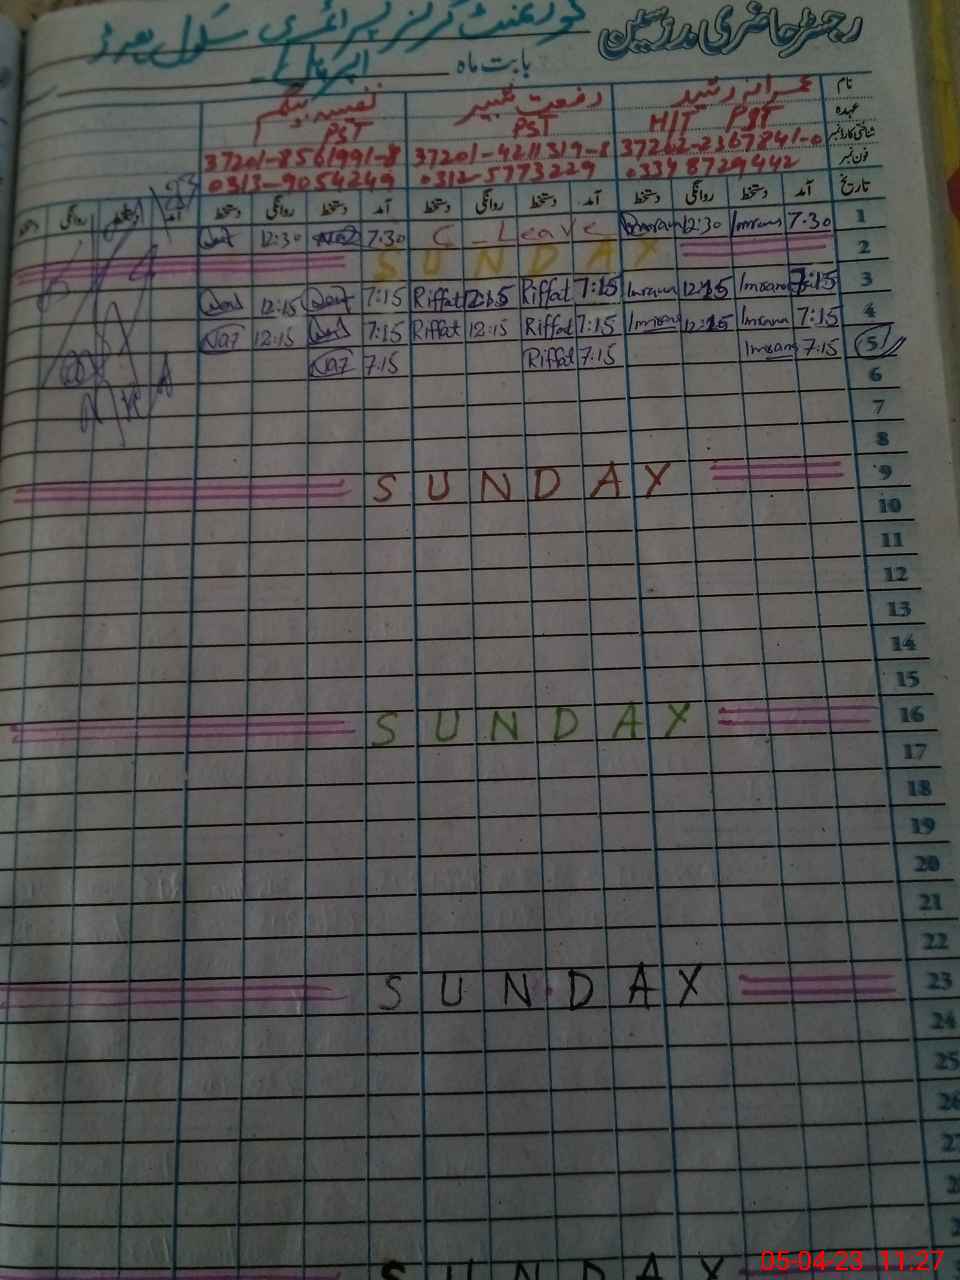 رجسٹر حاضری مدرسین گورنمنٹ گرلز پرائمری سکول
بابت ماہ اپریل
نام عمرانہ رشید رفعت شبیر نفیسہ بیگم
عہدہ PST HIT PST PST
شناختی کارڈ نمبر 37202-2367841-0 37201-4211319-8 37201-8561991-8
فون نمبر 0334 8729442 0312-5773229 0313-9054249
تاریخ آمد دستخط روانگی دستخط آمد دستخط روانگی دستخط آمد دستخط روانگی دستخط آمد دستخط روانگی دستخط
1 7:30 Imrana 12:30 Imrana C-Leave 7:30 Naz 12:30
2 SUNDAY
3 7:15 Imrana 12:15 Imrana 7:15 Riffat 12:15 Riffat 7:15 12:15
4 7:15 Imrana 12:15 Imrana 7:15 Riffat 12:15 Riffat 7:15 12:15 Naz
5 7:15 Imrana 7:15 Riffat 7:15 Naz
6
7
8
9 SUNDAY
10
11
12
13
14
15
16 SUNDAY
17
18
19
20
21
22
23 SUNDAY
24
25
26
SUNDAY
05-04-23 11:27